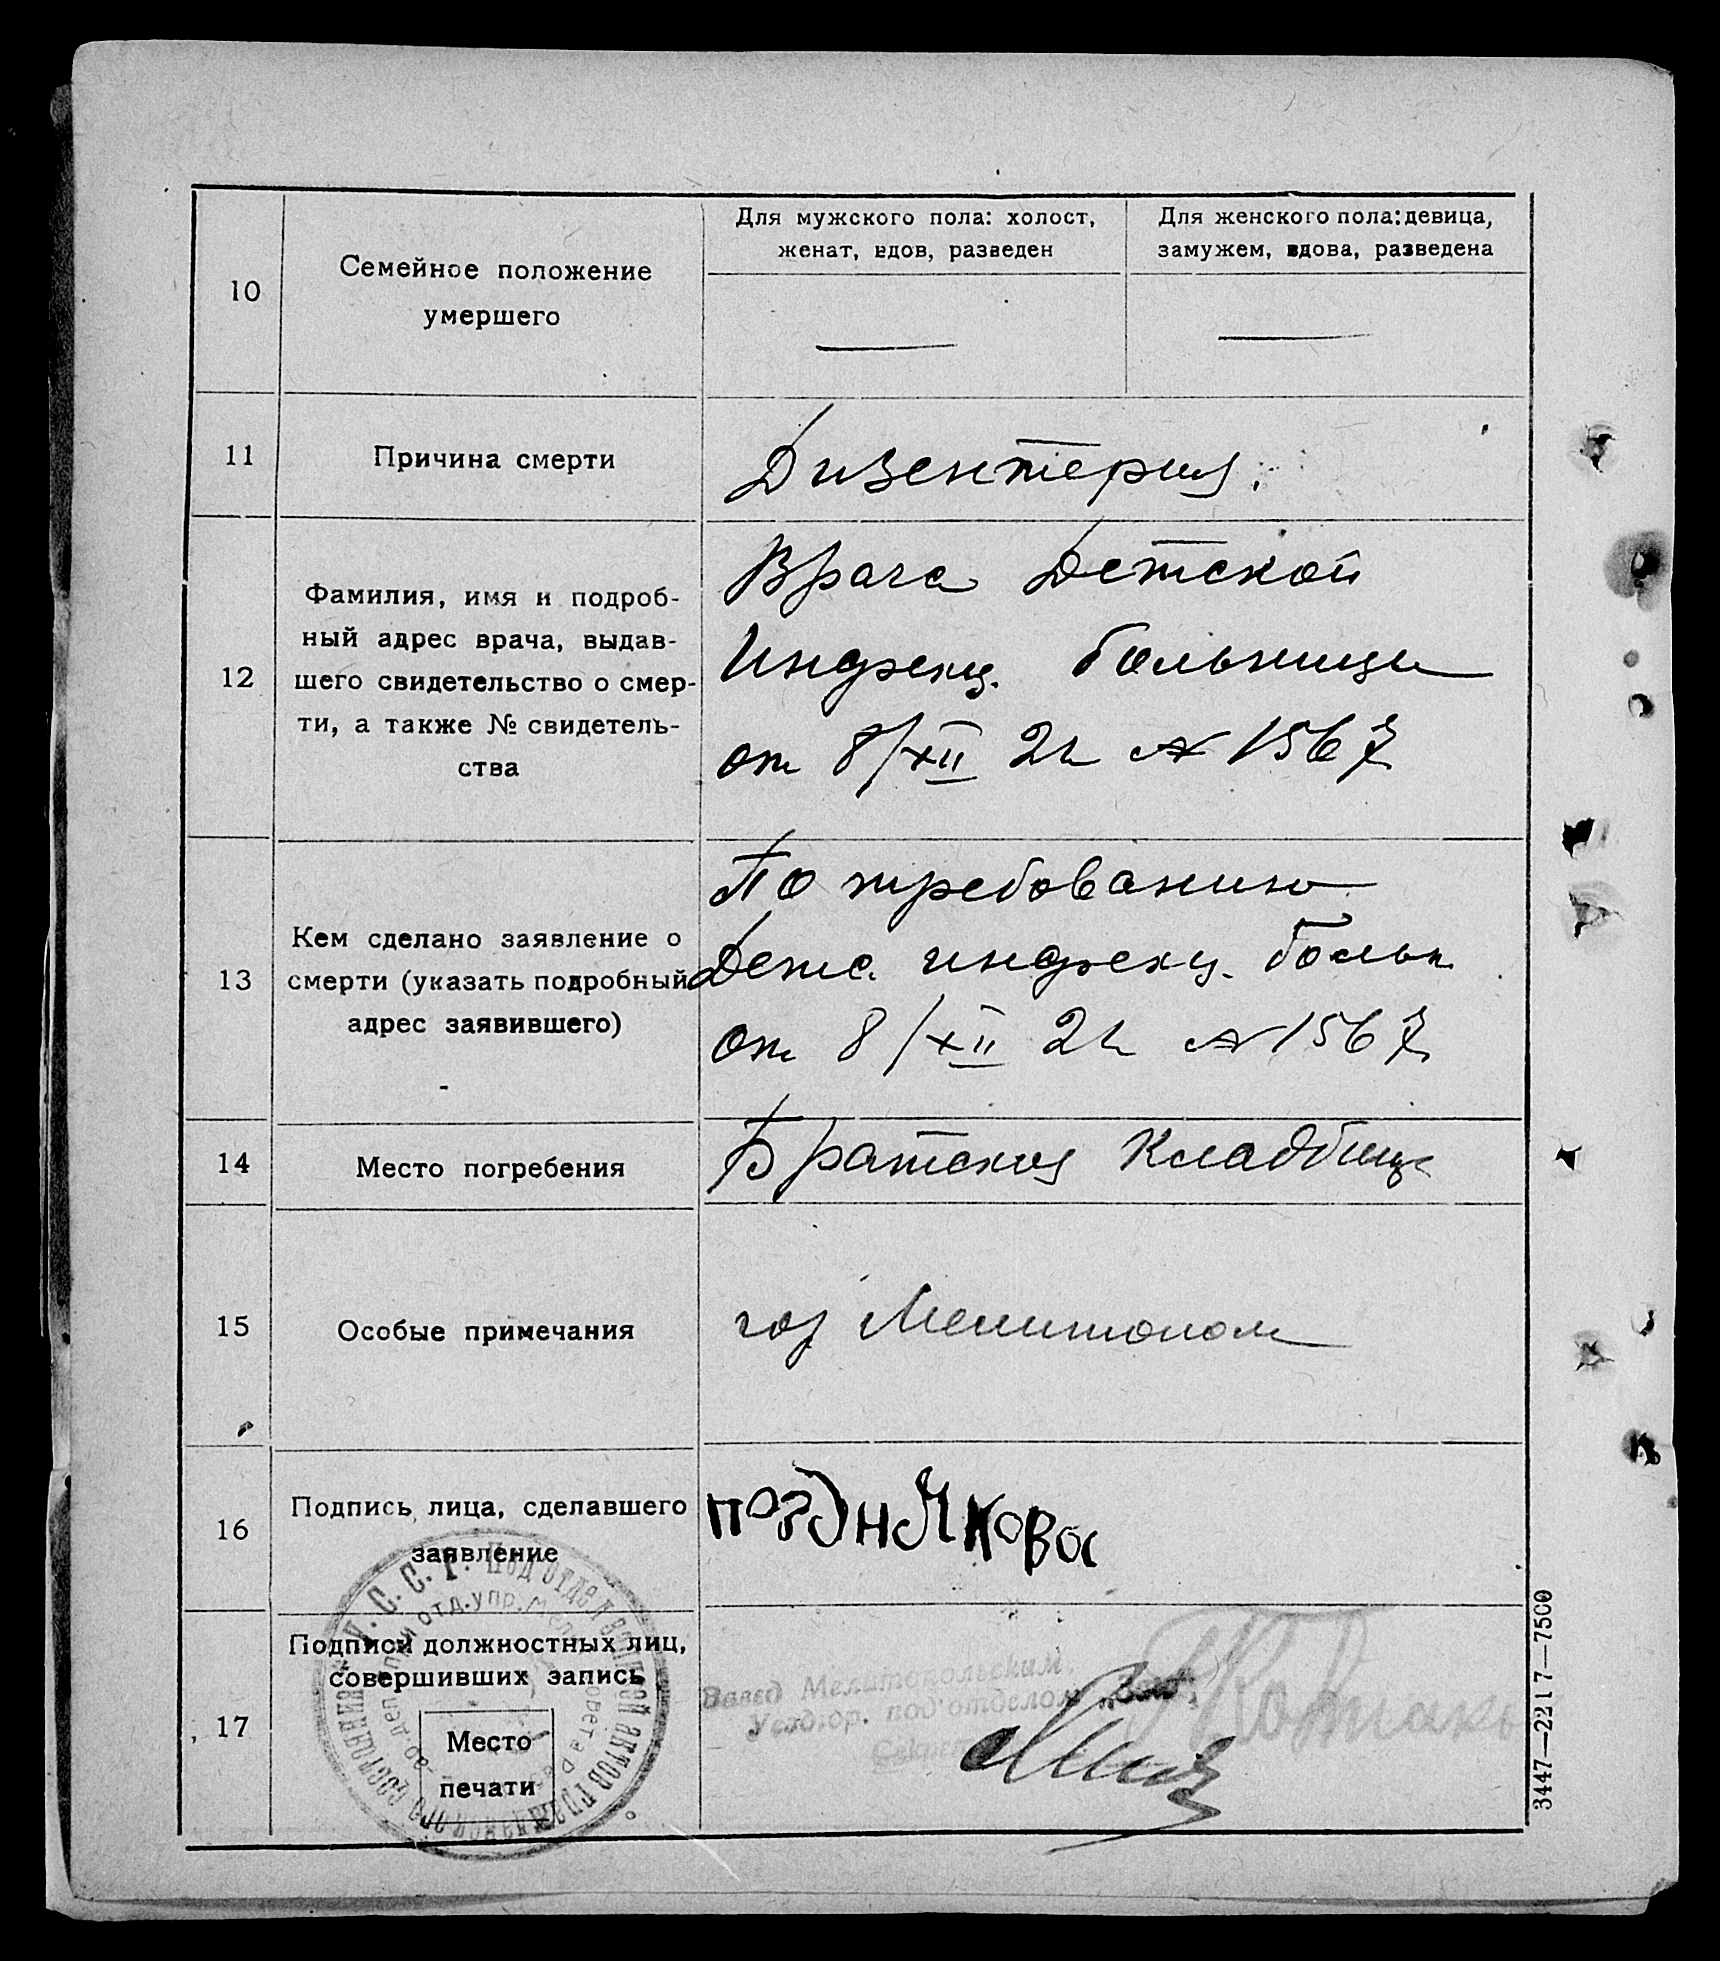 Для мужского пола: холост,
женат, вдов, разведен
Для женского пола: девица,
замужем, вдова, разведена
10
Семейное положение
умершего
11
Причина смерти
Дизентерия.
12
Фамилия, имя и подроб-
ный адрес врача, выдав-
шего свидетельство о смер-
ти, а также № свидетель-
ства
Врача Детской
Инфекц. больницы
от 8/XII 22 № 1567
13
Кем сделано заявление о
смерти (указать подробный
адрес заявившего)
По требованию
Детс. инфекц. больн
от 8/XII 22 № 1567
14
Место погребения
Братския кладбище
15
Особые примечания
гор Мелитополь
16
Подпись лица, сделавшего
заявление
позднЯкова
17
Подписи должностных лиц,
совершивших запись
Место
печати
Завед Мелитопольским
Уезд-гор. под'отделом „Загс"
3447—2217—7500